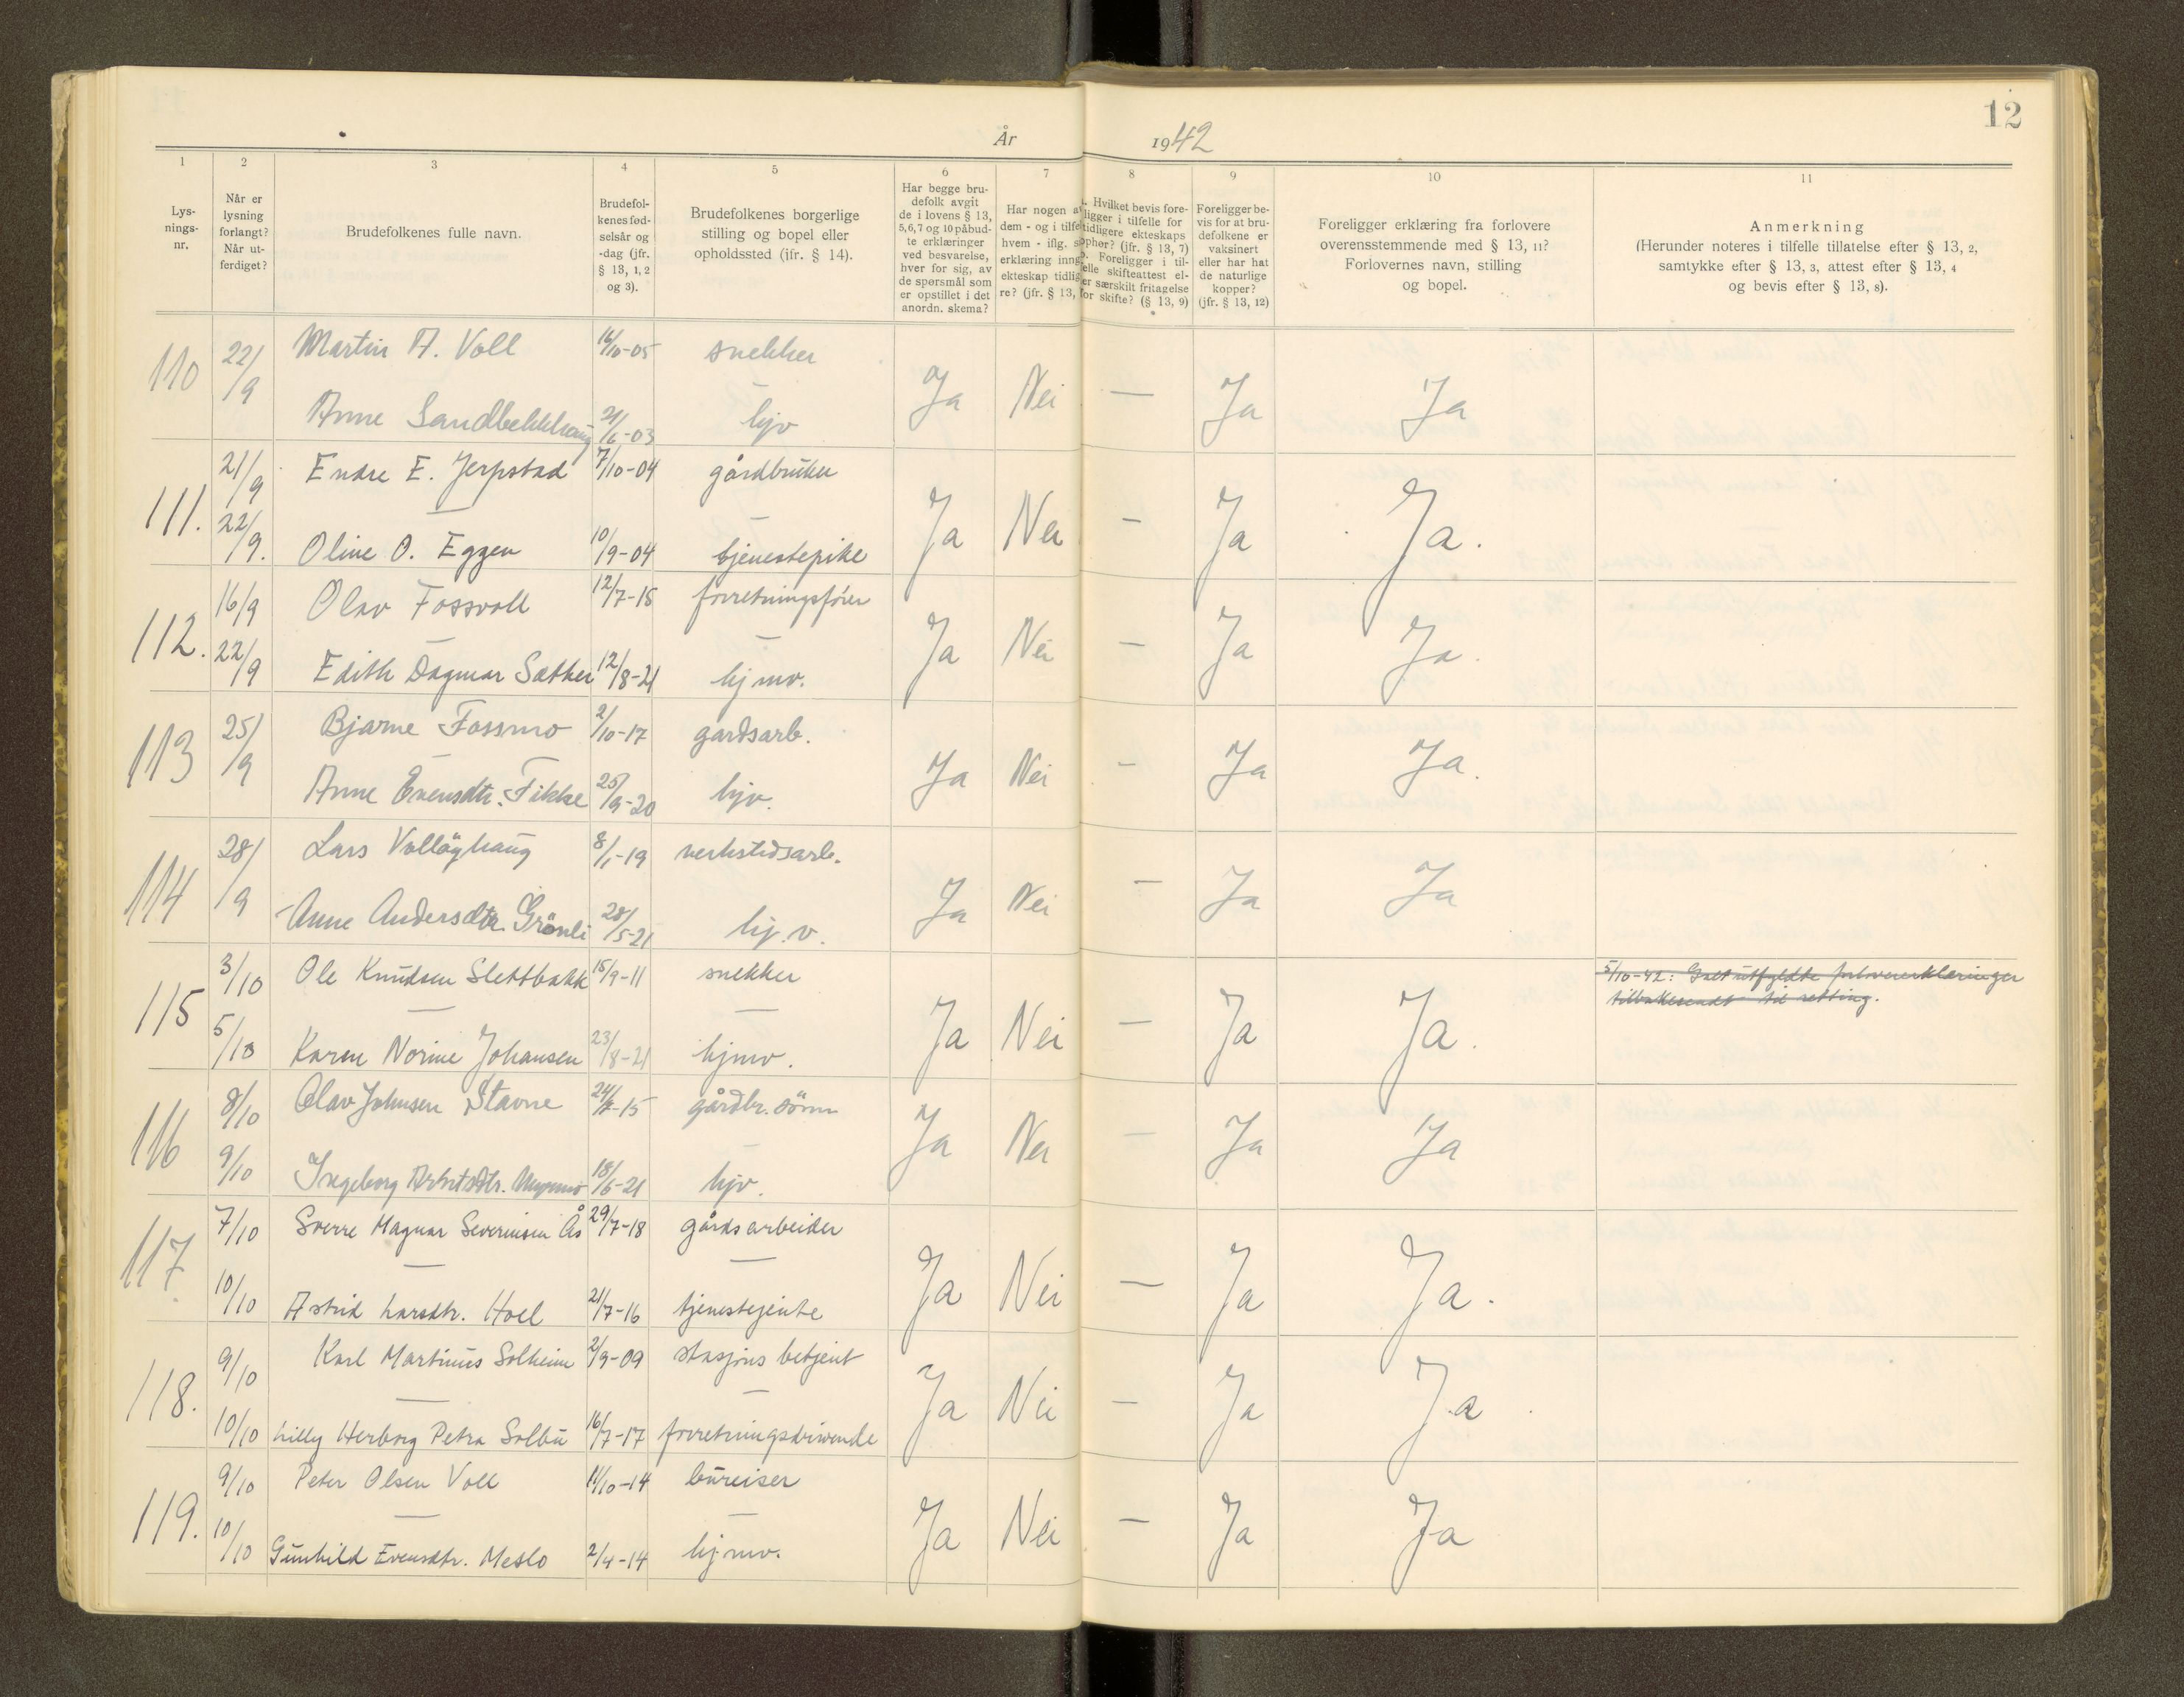 12
År 1942
1 2 3 4 5 6 7 8 9 10 11
Lys-
nings-
nr.
Når er
lysning
forlangt?
Når ut-
ferdiget?
Brudefolkenes fulle navn.
Brudefol-
kenes fød-
selsår og
-dag (jfr.
§ 13, 1, 2
og 3).
Brudefolkenes borgerlige
stilling og bopel eller
opholdssted (jfr. § 14).
Har begge bru-
defolk avgit
de i lovens § 13,
5, 6, 7 og 10 påbud-
te erklæringer
ved besvarelse,
hver for sig, av
de spørsmål som
er opstillet i det
anordn. skema?
Har nogen a
dem - og i tilfe
hvem - iflg. s
erklæring inng
ekteskap tidlig
re? (jfr. § 13,
Hvilket bevis fore-
ligger i tilfelle for
tidligere ekteskaps
ophør? (jfr. § 13, 7)
b. Foreligger i til-
felle skifteattest el-
er særskilt fritagelse
for skifte? (§ 13, 9)
Foreligger be-
vis for at bru-
defolkene er
vaksinert
eller har hat
de naturlige
kopper?
(jfr. § 13, 12)
Foreligger erklæring fra forlovere
overensstemmende med § 13, 11?
Forlovernes navn, stilling
og bopel.
Anmerkning
(Herunder noteres i tilfelle tillatelse efter § 13, 2,
samtykke efter § 13, 3, attest efter § 13, 4
og bevis efter § 13, 8).
110 22/9 Martin A. Voll 14/10-05 snekker Ja Nei — Ja Ja
Anne Sandbekkhaug 21/6-03 — hjv
111. 21/9 Endre E. Jerpstad 7/10-04 gårdbruker Ja Nei — Ja Ja.
22/9. — Oline O. Eggen 10/9-04 — tjenestepike
112. 16/9 Olav Fossvoll 12/7-15 forretningsfører Ja Nei — Ja Ja.
22/9 — Edith Dagmar Sæther 12/8-21 — hjmv.
113 25/9 Bjarne Fossmo 2/10-17 gardsarb. Ja Nei — Ja Ja.
— Anne Evensdtr. Fikke 25/9-20 hjv.
114 28/9 Lars Volløyhaug 8/1-19 verkstedsarb. Ja Nei — Ja Ja
Anne Andersdtr. Grönli 28/5-21 hj.v.
115 3/10 Ole Knudsen Slettbakk 15/9-11 snekker Ja Nei — Ja Ja. 5/10-42: Galt utfyldte forlovererklæringer
tilbakesendt til retting.
5/10 — Karen Norine Johansen 23/8-21 — hjmv.
116 8/10 Olav Johnsen Stavne 24/8-15 gårdbr. sönn Ja Nei — Ja Ja
9/10 Ingeborg 18/6-21 — hjv.
117. 7/10 Sverre Magnar Severinsen Ås 29/7-18 gårdsarbeider Ja Nei — Ja Ja.
10/10 — Astrid Larsdtr. Hoel 21/7-16 — tjenestejente
118. 9/10 Karl Martinus Solheim 2/9-09 stasjons betjent Ja Nei — Ja Ja.
10/10 — Lilly Herborg Petra Solbu 16/7-17 — forretningsdrivende
119. 9/10 Peter Olsen Voll 11/10-14 bureiser Ja Nei — Ja Ja
10/10 — Gunhild Evensdtr. Meslo 2/4-14 — hjmv.